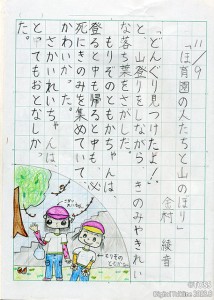 11/9
「ほ育園の人たちと山のぼり」
金村 綾音
「どんぐり見つけたよ！」
と、山登りをしながら、きのみやきれい
な落ち葉をさがした。
もりそのともかちゃんは、
登ると中も帰ると中も必
死にきのみを集めていて
かわいかった。
さかいれいちゃんは、
とってもおとなしかっ
た。